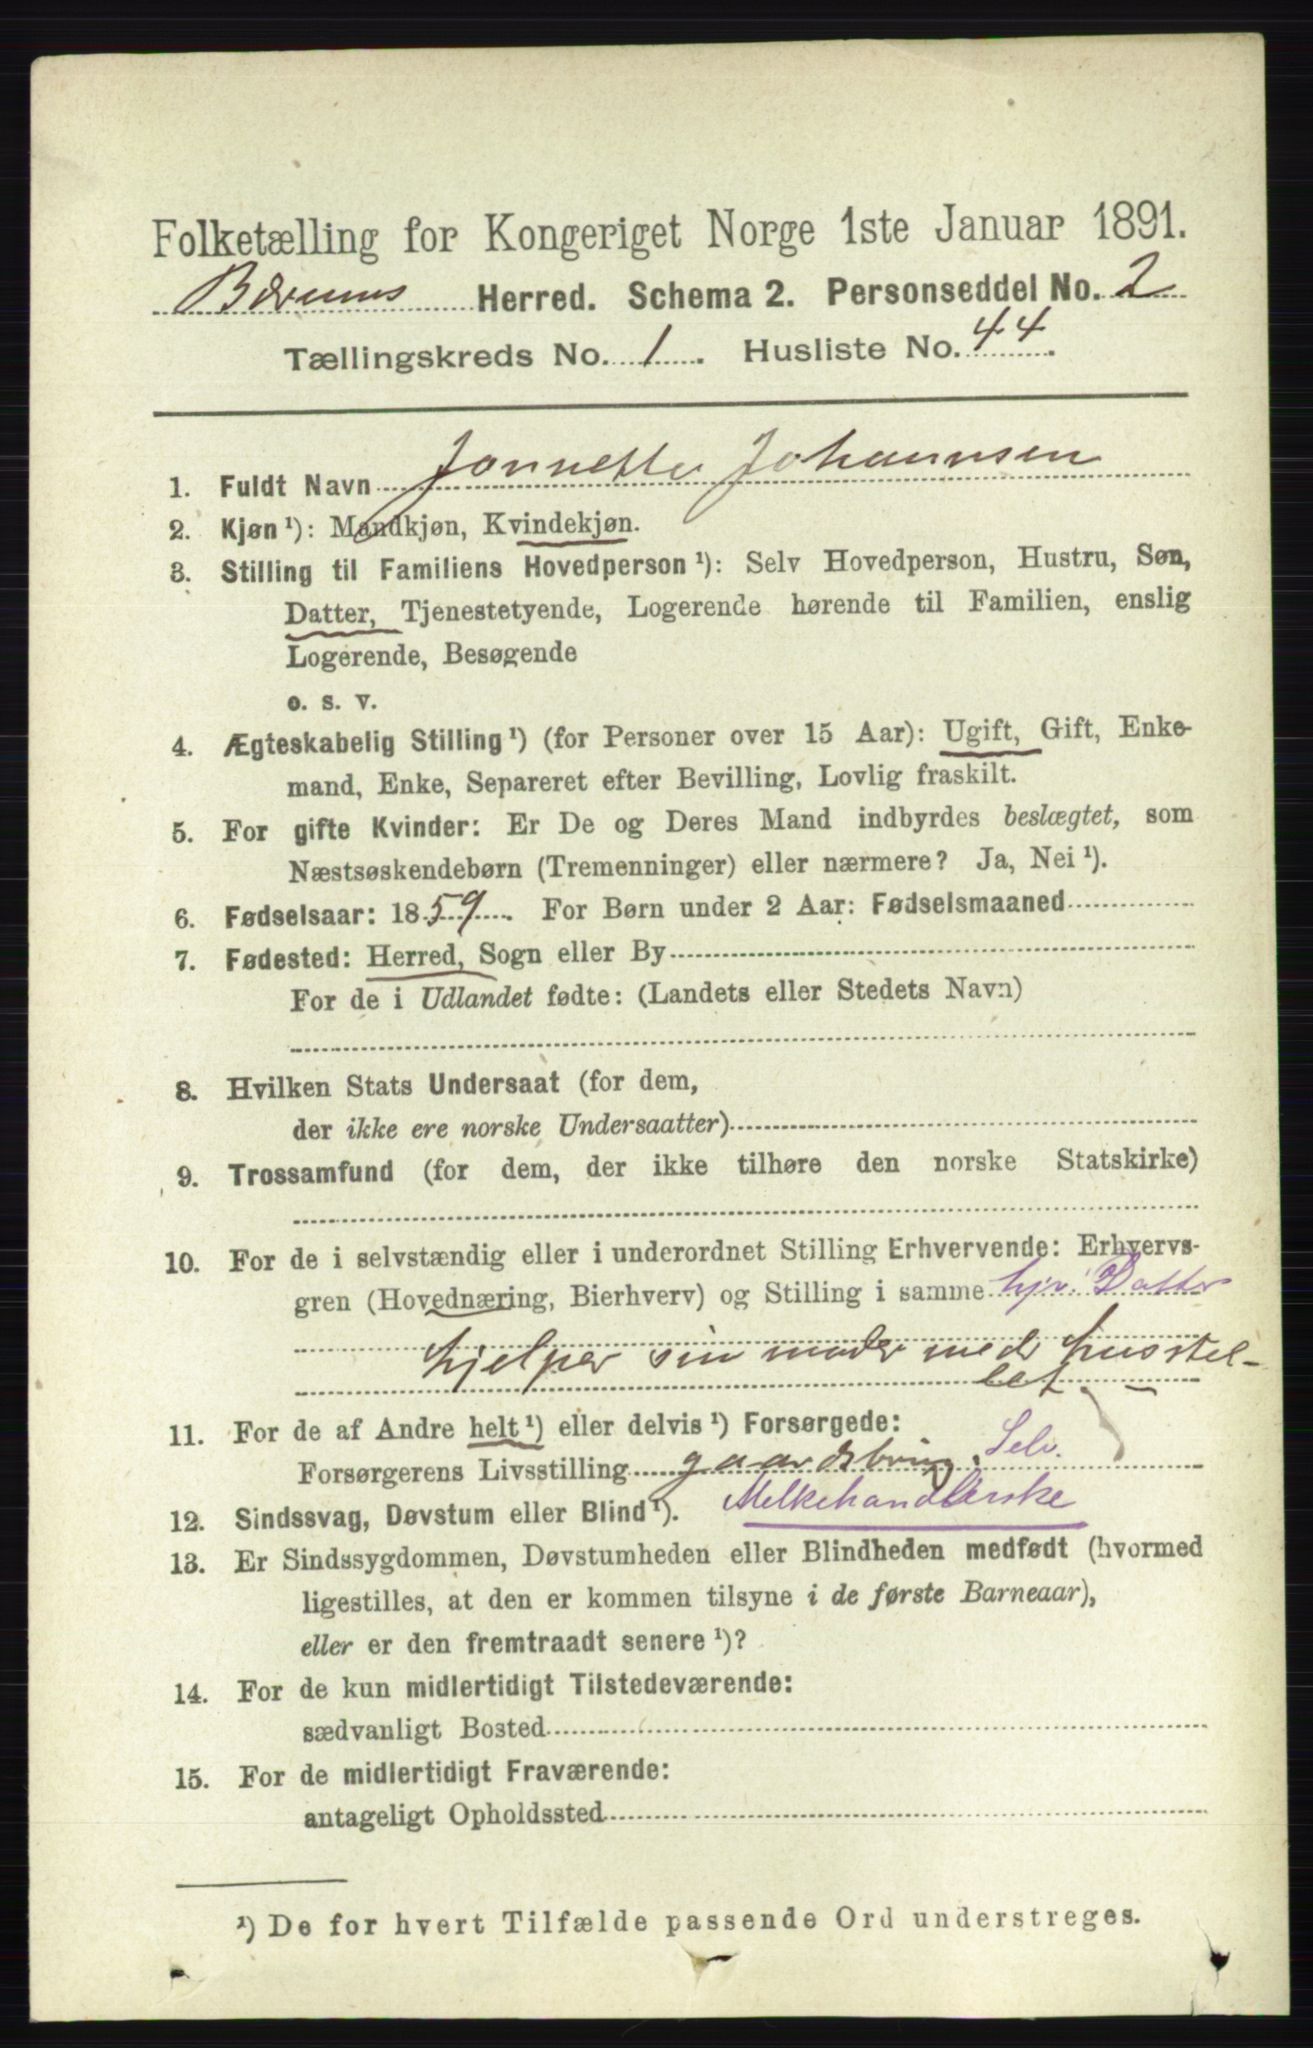 Folketælling for Kongeriget Norge 1ste Januar 1891.
Bærums Herred. Schema 2. Personseddel No. 2
Tællingskreds No. 1. Husliste No. 44.
1. Fuldt Navn Jonnette Johannsen
2. Kjøn ¹): Mandkjøn, Kvindekjøn.
3. Stilling til Familiens Hovedperson ¹): Selv Hovedperson, Hustru, Søn,
Datter, Tjenestetyende, Logerende hørende til Familien, enslig
Logerende, Besøgende
o. s. v.
4. Ægteskabelig Stilling ¹) (for Personer over 15 Aar): Ugift, Gift, Enke-
mand, Enke, Separeret efter Bevilling, Lovlig fraskilt.
5. For gifte Kvinder: Er De og Deres Mand indbyrdes beslægtet, som
Næstsøskendebørn (Tremenninger) eller nærmere? Ja, Nei ¹).
6. Fødselsaar: 1859. For Børn under 2 Aar: Fødselsmaaned
7. Fødested: Herred, Sogn eller By
For de i Udlandet fødte: (Landets eller Stedets Navn)
8. Hvilken Stats Undersaat (for dem,
der ikke ere norske Undersaatter)
9. Trossamfund (for dem, der ikke tilhøre den norske Statskirke)
10. For de i selvstændig eller i underordnet Stilling Erhvervende: Erhvervs-
gren (Hovednæring, Bierhverv) og Stilling i samme hjv. Datter
hjelper sin moder med husstel-
let.
11. For de af Andre helt ¹) eller delvis ¹) Forsørgede:
Forsørgerens Livsstilling gaardsbrug. Selv.
12. Sindssvag, Døvstum eller Blind ¹). Melkehandlerske
13. Er Sindssygdommen, Døvstumheden eller Blindheden medfødt (hvormed
ligestilles, at den er kommen tilsyne i de første Barneaar),
eller er den fremtraadt senere ¹)?
14. For de kun midlertidigt Tilstedeværende:
sædvanligt Bosted
15. For de midlertidigt Fraværende:
antageligt Opholdssted
¹) De for hvert Tilfælde passende Ord understreges.